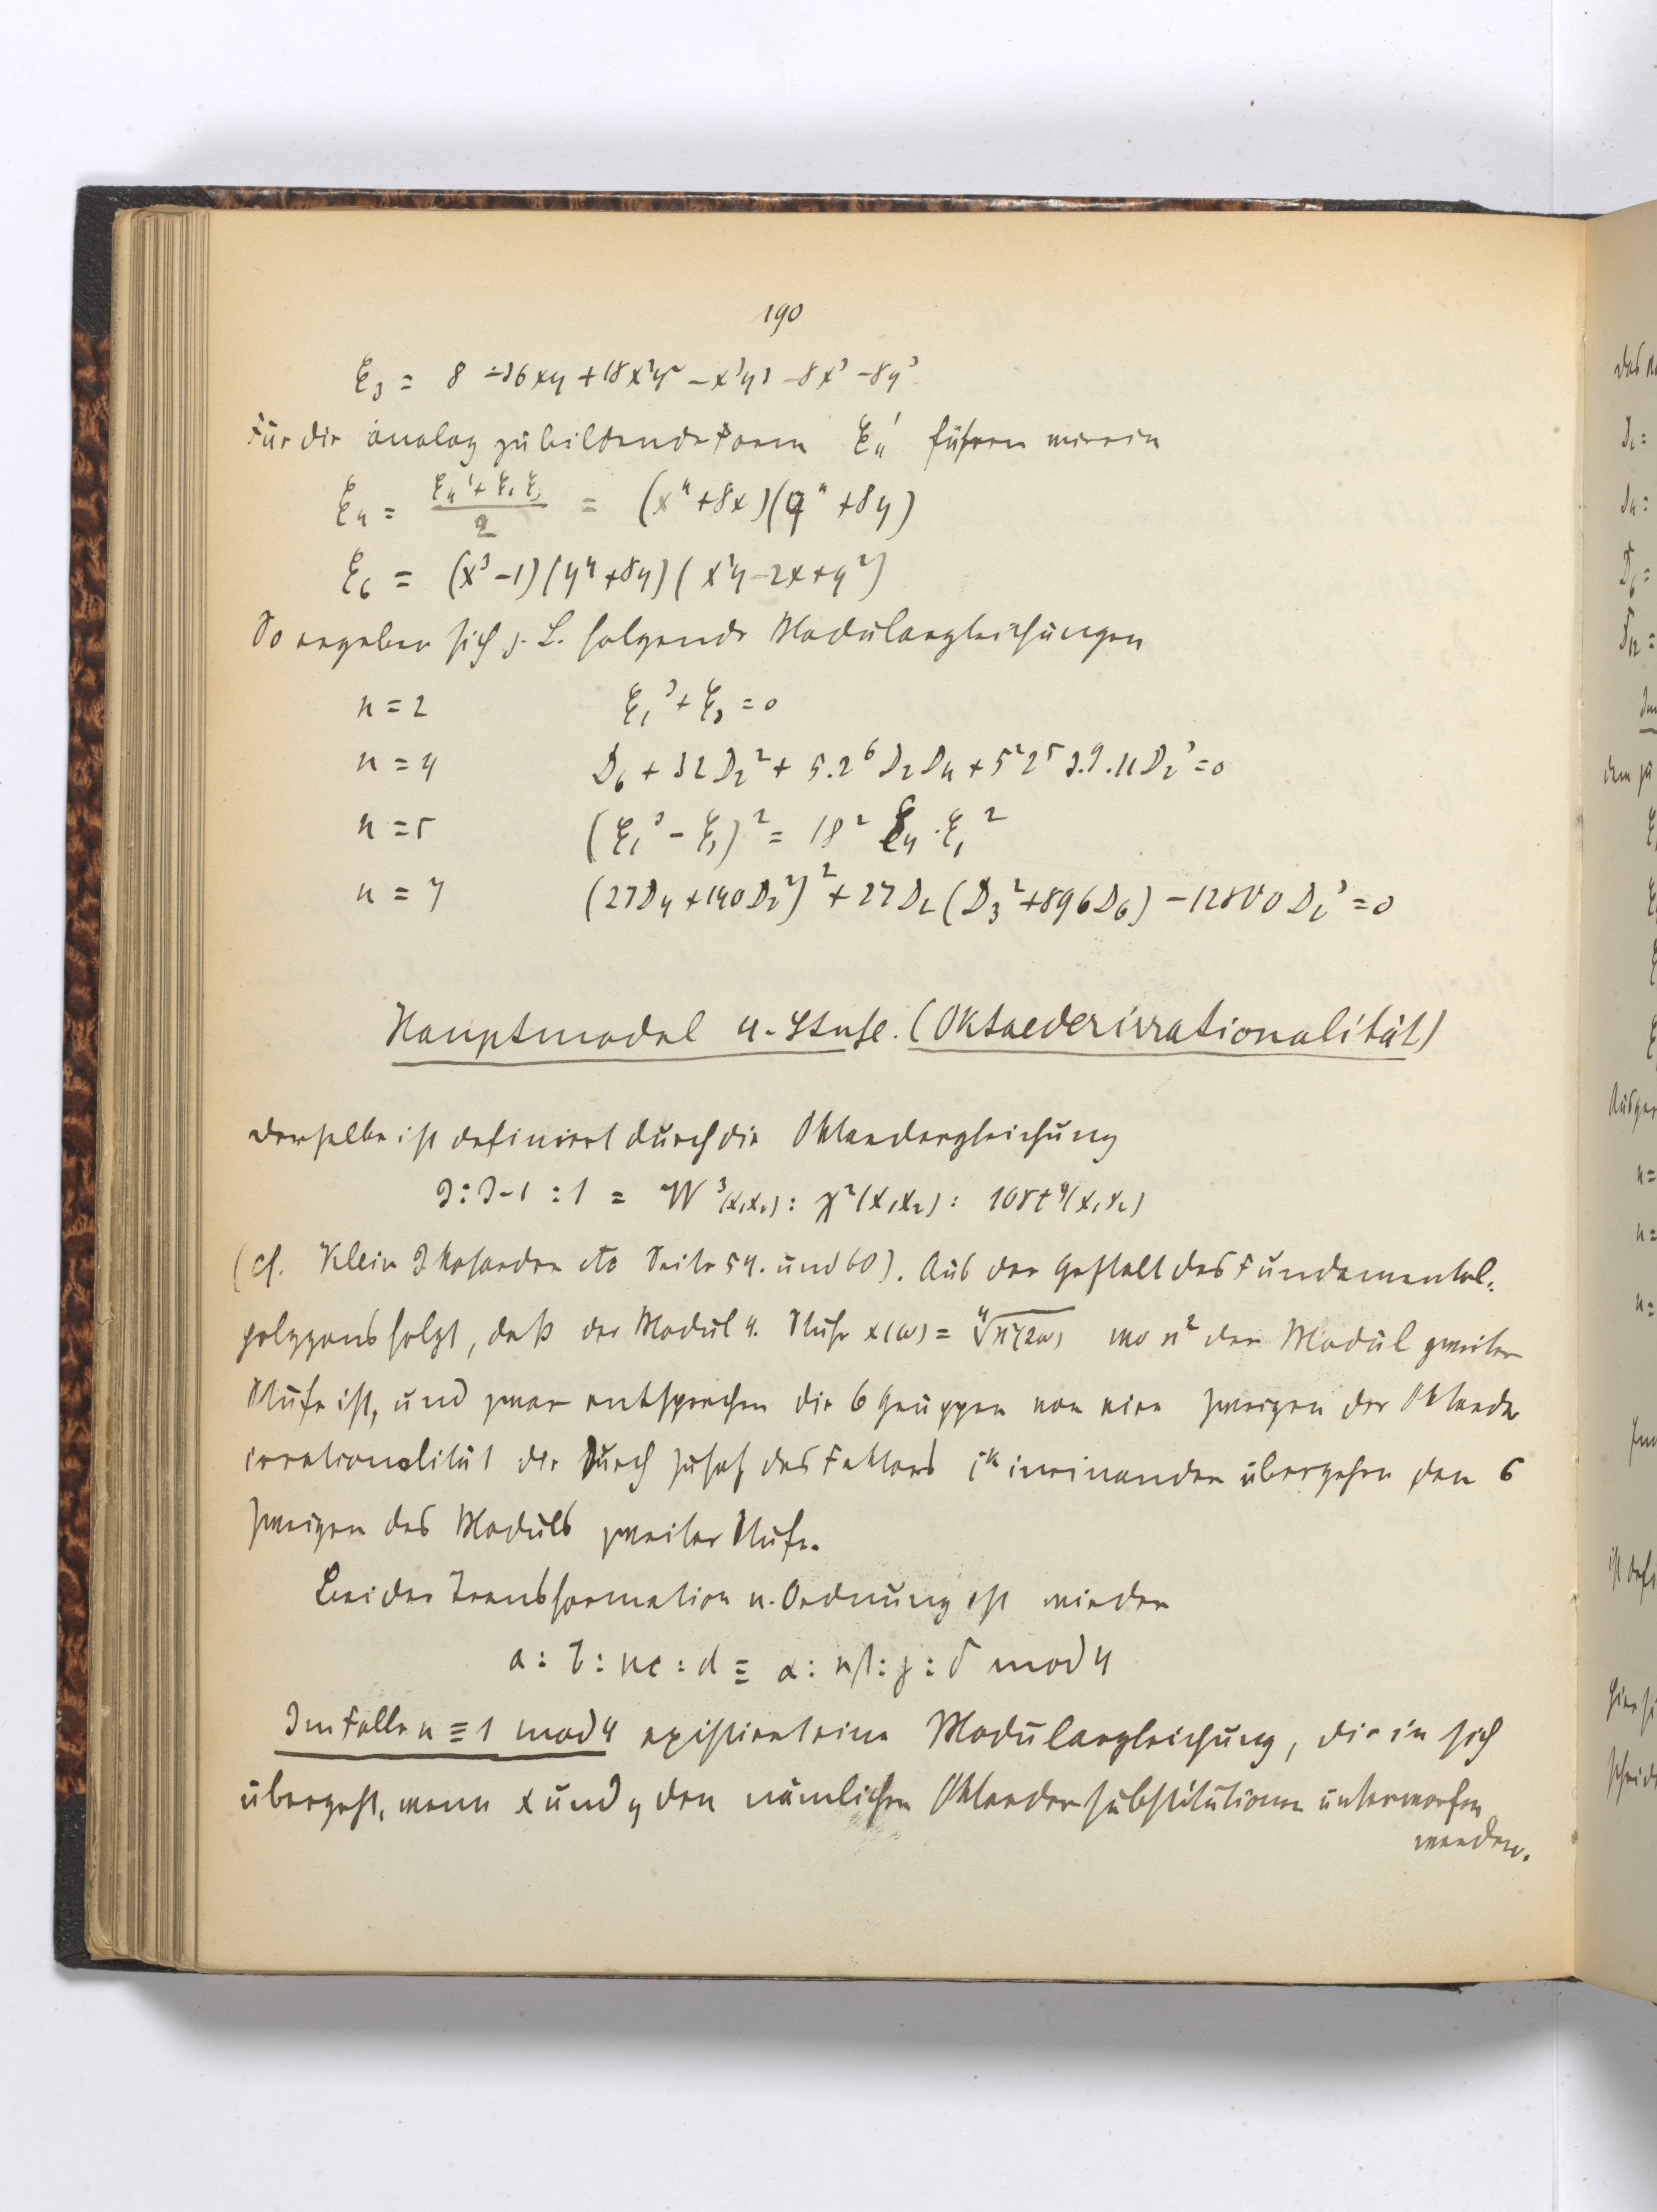 190
ξ₃ = 8 - 36xy + 18x²y² - x³y³ - 8x³ - 8y³
Für die analog zu bildende Form ξ₄' führen wir ein
ξ₄ = (ξ₄' + ξ₁ ξ₃)/2 = (x⁴ + 8x)(y⁴ + 8y)
ξ₆ = (x³ - 1)(y⁴ + 8y)(x²y - 2x + y²)
So ergeben sich z. B. folgende Modulargleichungen
n = 2 ξ₁³ + ξ₃ = 0
n = 4 D₆ + 32 D₂² + 5.2⁶ D₂D₄ + 5²2⁵ 3.9.11 D₂³ = 0
n = 5 (ξ₁³ - ξ₃)² = 18² ξ₄ · ξ₁²
n = 7 (27D₄ + 140D₂²)² + 27D₂(D₃² + 896D₆) - 12800 D₂³ = 0
Hauptmodul 4. Stufe. (Oktaederirrationalität)
Derselbe ist definiert durch die Oktaedergleichung
J : J-1 : 1 = W³(x₁x₂) : χ²(x₁x₂) : 108t⁴(x₁x₂)
(cf. Klein Ikosaeder etc Seite 54. und 60). Aus der Gestalt des Fundamental-
polygons folgt, daß der Modul 4. Stufe x(ω) = ∜ϰ²(2ω) wo ϰ² der Modul zweiter
Stufe ist, und zwar entsprechen die 6 Gruppen von vier Zweigen der Oktaeder
irrationalität die durch Zusatz des Faktors iᵏ ineinander übergehen den 6
Zweigen des Moduls zweiter Stufe.
Bei der Transformation n. Ordnung ist wieder
a : b : nc : d ≡ α : nβ : γ : δ mod 4
Im Falle n ≡ 1 mod 4 existiert eine Modulargleichung, die in sich
übergeht, wenn x und y den nämlichen Oktaedersubstitutionen unterworfen
werden.